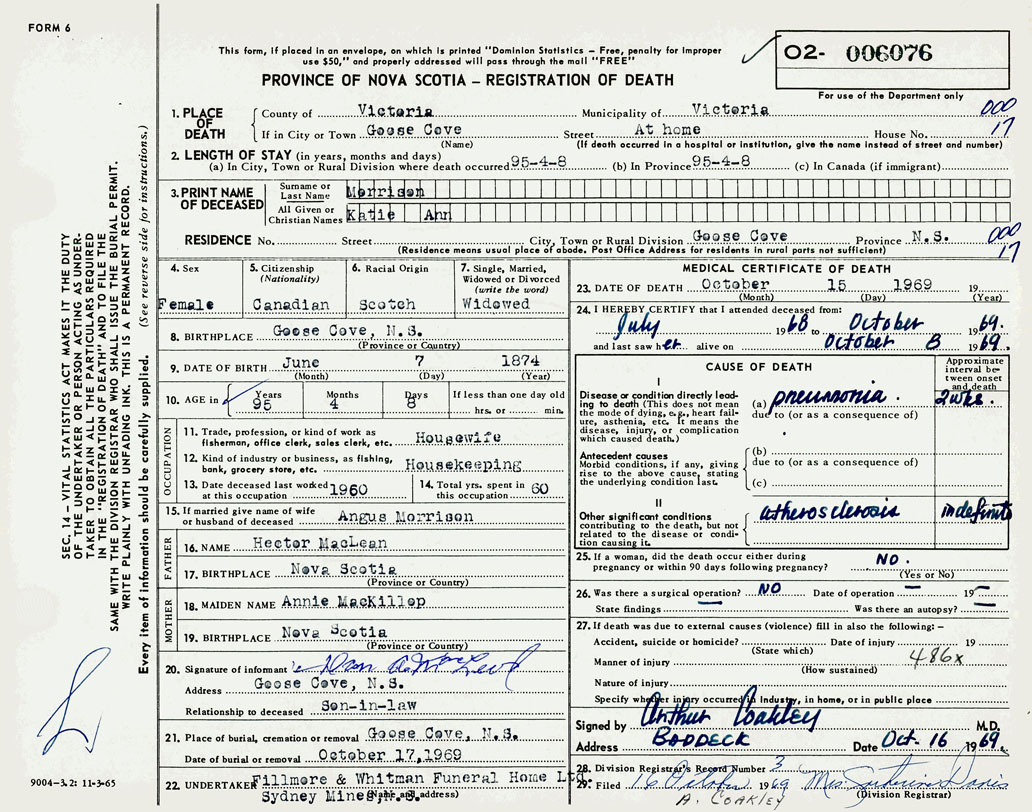 FORM 6
This form, if placed in an envelope, on which is printed "Dominion Statistics – Free, penalty for improper
use $50," and properly addressed will pass through the mail "FREE"
PROVINCE OF NOVA SCOTIA – REGISTRATION OF DEATH
02- 006076
For use of the Department only
1. PLACE OF DEATH
County of Victoria Municipality of Victoria 000
If in City or Town Goose Cove Street At home House No. 17
(Name) (If death occurred in a hospital or institution, give the name instead of street and number)
2. LENGTH OF STAY (in years, months and days)
(a) In City, Town or Rural Division where death occurred 95-4-8 (b) In Province 95-4-8 (c) In Canada (if immigrant)
3. PRINT NAME OF DECEASED
Surname or Last Name Morrison
All Given or Christian Names Katie Ann
RESIDENCE No. Street City, Town or Rural Division Goose Cove Province N.S. 000
(Residence means usual place of abode. Post Office Address for residents in rural parts not sufficient) 17
4. Sex
Female
5. Citizenship
(Nationality)
Canadian
6. Racial Origin
Scotch
7. Single, Married, Widowed or Divorced
(write the word)
Widowed
8. BIRTHPLACE Goose Cove, N.S.
(Province or Country)
9. DATE OF BIRTH June 7 1874
(Month) (Day) (Year)
10. AGE in Years Months Days If less than one day old
95 4 8 hrs. or min.
OCCUPATION
11. Trade, profession, or kind of work as
fisherman, office clerk, sales clerk, etc. Housewife
12. Kind of industry or business, as fishing,
bank, grocery store, etc. Housekeeping
13. Date deceased last worked
at this occupation 1960
14. Total yrs. spent in
this occupation 60
15. If married give name of wife
or husband of deceased Angus Morrison
FATHER
16. NAME Hector MacLean
17. BIRTHPLACE Nova Scotia
(Province or Country)
MOTHER
18. MAIDEN NAME Annie MacKillop
19. BIRTHPLACE Nova Scotia
(Province or Country)
20. Signature of informant
Address Goose Cove, N.S.
Relationship to deceased Son-in-law
21. Place of burial, cremation or removal Goose Cove, N.S.
Date of burial or removal October 17,1969
22. UNDERTAKER Fillmore & Whitman Funeral Home Ltd.
Sydney Mines, N.S.
(Name and address)
MEDICAL CERTIFICATE OF DEATH
23. DATE OF DEATH October 15 1969 19
(Month) (Day) (Year)
24. I HEREBY CERTIFY that I attended deceased from:
July 1968 to October 1969.
and last saw her alive on October 8 1969.
CAUSE OF DEATH
Approximate interval between onset and death
I
Disease or condition directly leading to death (This does not mean the mode of dying, e.g., heart failure, asthenia, etc. It means the disease, injury, or complication which caused death.)
(a) pneumonia. 2 wks.
due to (or as a consequence of)
Antecedent causes
Morbid conditions, if any, giving rise to the above cause, stating the underlying condition last.
(b)
due to (or as a consequence of)
(c)
II
Other significant conditions
contributing to the death, but not related to the disease or condition causing it.
atherosclerosis indefinite
25. If a woman, did the death occur either during
pregnancy or within 90 days following pregnancy? NO.
(Yes or No)
26. Was there a surgical operation? NO Date of operation — 19 —
State findings — Was there an autopsy? —
27. If death was due to external causes (violence) fill in also the following: –
Accident, suicide or homicide? Date of injury 19
(State which) 486x
Manner of injury
(How sustained)
Nature of injury
Specify whether injury occurred in Industry, in home, or in public place
Signed by Arthur Coakley M.D.
Address BADDECK Date Oct-16 1969.
28. Division Registrar's Record Number 3
29. Filed 16 October 1969
A. COAKLEY (Division Registrar)
SEC. 14 – VITAL STATISTICS ACT MAKES IT THE DUTY
OF THE UNDERTAKER OR PERSON ACTING AS UNDER-
TAKER TO OBTAIN ALL THE PARTICULARS REQUIRED
IN THE "REGISTRATION OF DEATH" AND TO FILE THE
SAME WITH THE DIVISION REGISTRAR WHO SHALL ISSUE THE BURIAL PERMIT.
WRITE PLAINLY WITH UNFADING INK. THIS IS A PERMANENT RECORD.
Every item of information should be carefully supplied. (See reverse side for instructions.)
9004-3.2: 11-3-65